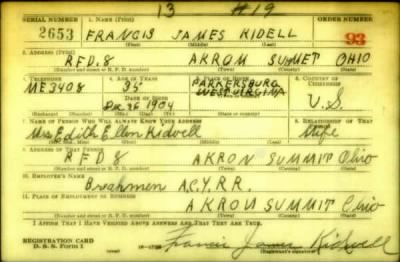 13 #19
SERIAL NUMBER 1. NAME (Print) ORDER NUMBER
2653 FRANCIS JAMES KIDELL 93
(First) (Middle) (Last)
2. ADDRESS (Print)
RFD.8 AKRON SUMMET OHIO
(Number and street or R. F. D. number) (Town) (County) (State)
3. TELEPHONE 4. AGE IN YEARS 5. PLACE OF BIRTH 6. COUNTRY OF CITIZENSHIP
ME3408 35 PARKERSBURG
DATE OF BIRTH WEST VIRGINIA U.S.
Dec 26 1904
7. NAME OF PERSON WHO WILL ALWAYS KNOW YOUR ADDRESS 8. RELATIONSHIP OF THAT PERSON
Mrs Edith Ellen Kidwell Wife
9. ADDRESS OF THAT PERSON
RFD 8 AKRON SUMMIT Ohio
(Number and street or R. F. D. number) (Town) (County) (State)
10. EMPLOYER'S NAME
Breahmen A.C.Y.R.R.
11. PLACE OF EMPLOYMENT OR BUSINESS
AKRON SUMMIT Ohio
(Number and street or R. F. D. number) (Town) (County) (State)
I AFFIRM THAT I HAVE VERIFIED ABOVE ANSWERS AND THAT THEY ARE TRUE.
REGISTRATION CARD
D. S. S. Form 1 Francis James Kidwell
(Registrant's signature)